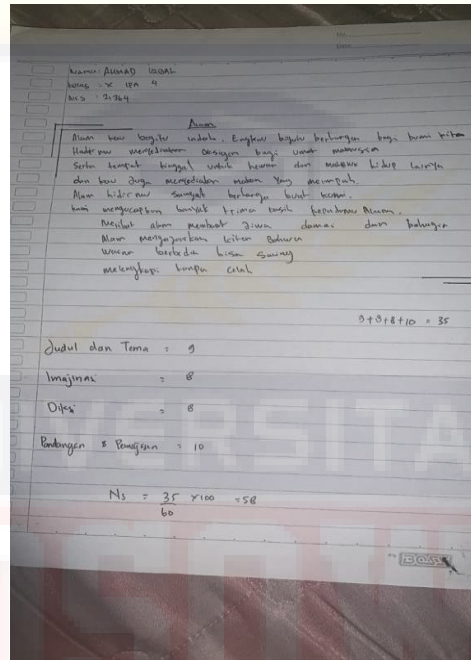 Nama : AHMAD IQBAL
Kelas : X IPA 4
NIS : 21264
Alam
Alam kau begitu indah, Engkau begitu berharga bagi bumi kita
Hadirmu menyediakan oksigen bagi umat manusia
Serta tempat tinggal untuk hewan dan makhluk hidup lainya
dan kau juga menyediakan makan yang melimpah.
Alam hidirmu sangat berharga buat kami.
kami mengucapkan banyak terima kasih kepadamu Alam.
Melihat alam membuat jiwa damai dan bahagia
Alam mengajarkan kita Bahwa
warna berbeda bisa saling
melengkapi tanpa celah
9+8+8+10 = 35
Judul dan Tema = 9
Imajinasi = 8
Diksi = 8
Pandangan & Pengajian = 10
Ns = 35 x100 = 58
60